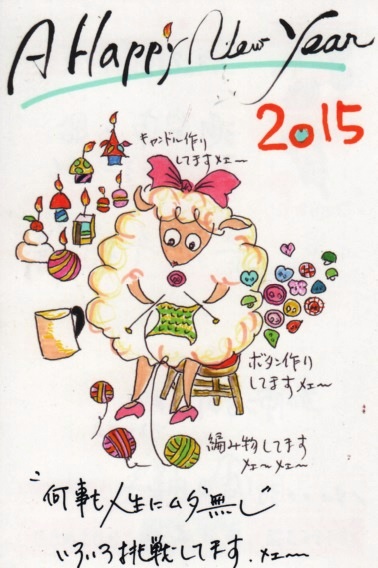 A Happy New Year
2015
キャンドル作り
してますメェ〜
ボタン作り
してますメェ〜
編み物してます
メェ〜メェ〜
"何事も人生にムダ無し"
いろいろ挑戦してます。メェ〜